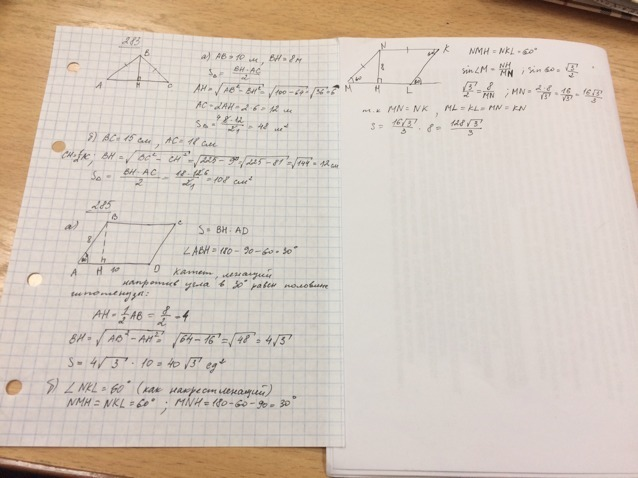 283
B
A
H
C
а) AB = 10 м, BH = 8 м
S△ = BH·AC / 2
AH = √AB² − BH² = √100−64 = √36 = 6
AC = 2AH = 2·6 = 12 м
S△ = 8·12 / 2 = 48 м²
б) BC = 15 см, AC = 18 см
BH = √BC² − CH² = √225−9² = √225−81 = √144 = 12 см
S△ = BH·AC / 2 = 18·12 / 2 = 108 см²
285
а)
B
C
8
60
A
H
10
D
S = BH·AD
∠ABH = 180−90−60 = 30°
Катет, лежащий
напротив угла в 30° равен половине
гипотенузы:
AH = 1/2 AB = 8/2 = 4
BH = √AB² − AH² = √64−16 = √48 = 4√3
S = 4√3 · 10 = 40√3 ед²
б) ∠NKL = 60° (как накрест лежащий)
NMH = NKL = 60° ; MNH = 180−60−90 = 30°
N
K
60
8
60
M
H
L
NMH = NKL = 60°
sin∠M = NH/MN ; sin 60 = √3/2
√3/2 = 8/MN ; MN = 2·8/√3 = 16/√3 = 16√3/3
т.к. MN = NK, ML = KL = MN = KN
S = 16√3/3 · 8 = 128√3/3